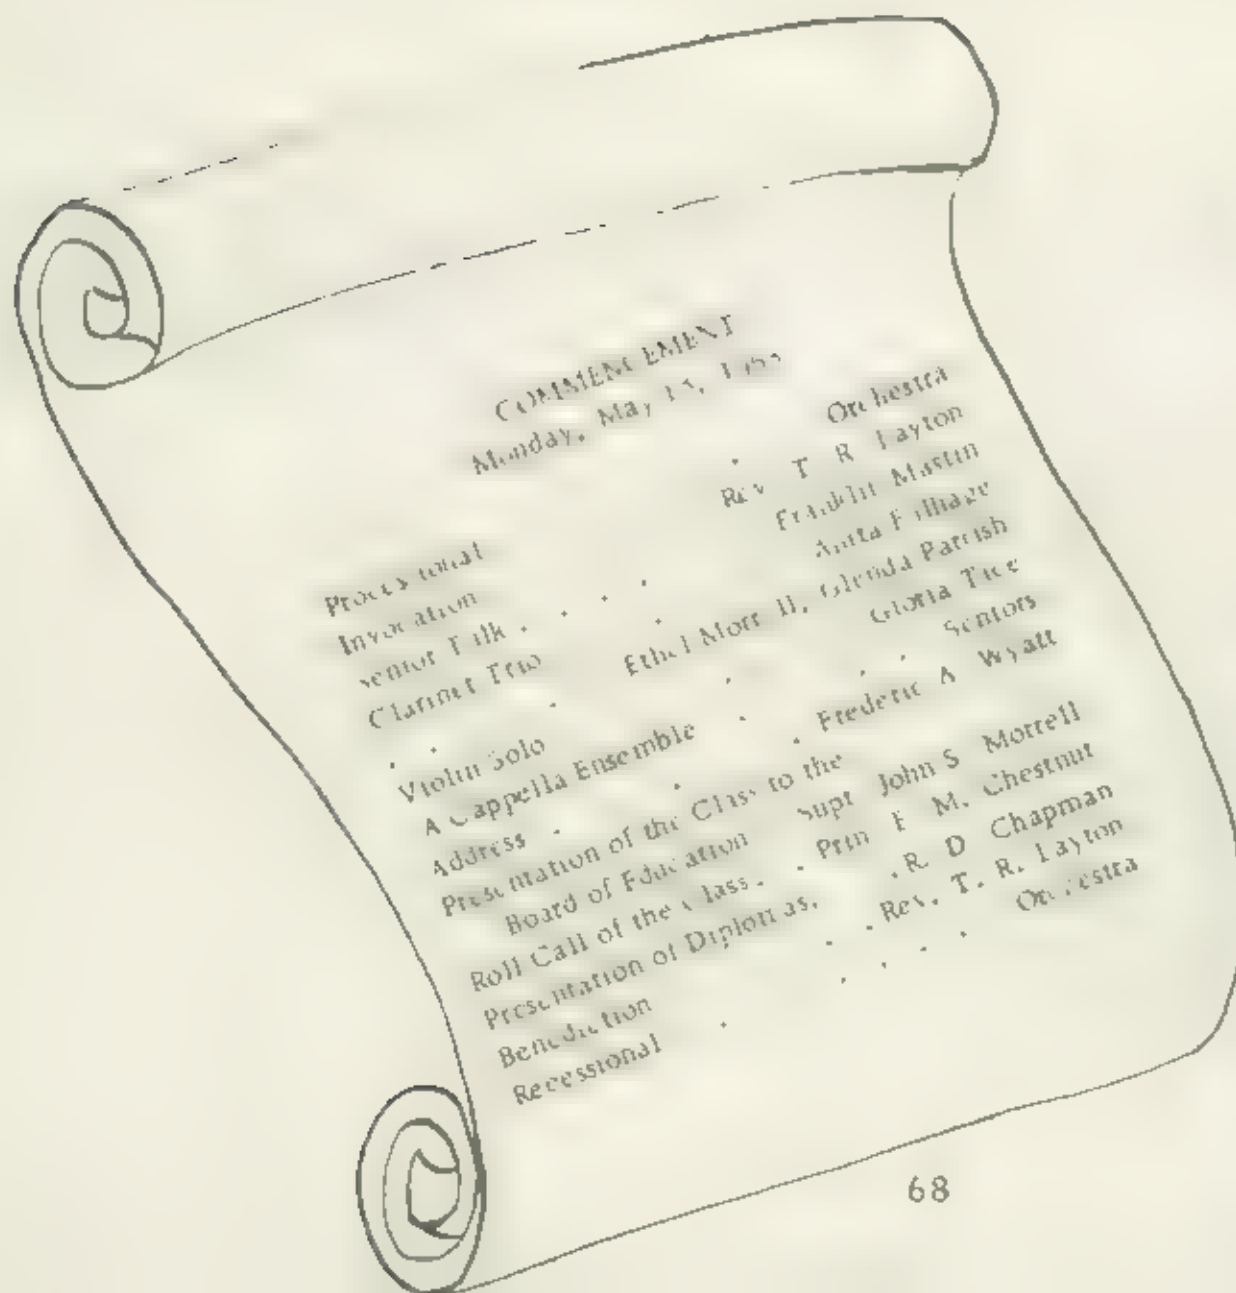 COMMENCEMENT
Monday, May
Processional . Orchestra
Invocation Rev. T. R. Layton
Senior Talk . . . . Franklin Mastin
Clarinet Trio . Anita
. . . Ethel Morrell, Glenda Parrish
Violin Solo . Gloria Tice
A Cappella Ensemble . . . Seniors
Address . . . Frederic A. Wyatt
Presentation of the Class to the
Board of Education Supt. John S. Morrell
Roll Call of the Class. . Prin. M. Chestnut
Presentation of Diplomas. . R. D. Chapman
Benediction . . Rev. T. R. Layton
Recessional . . . . Orchestra
68